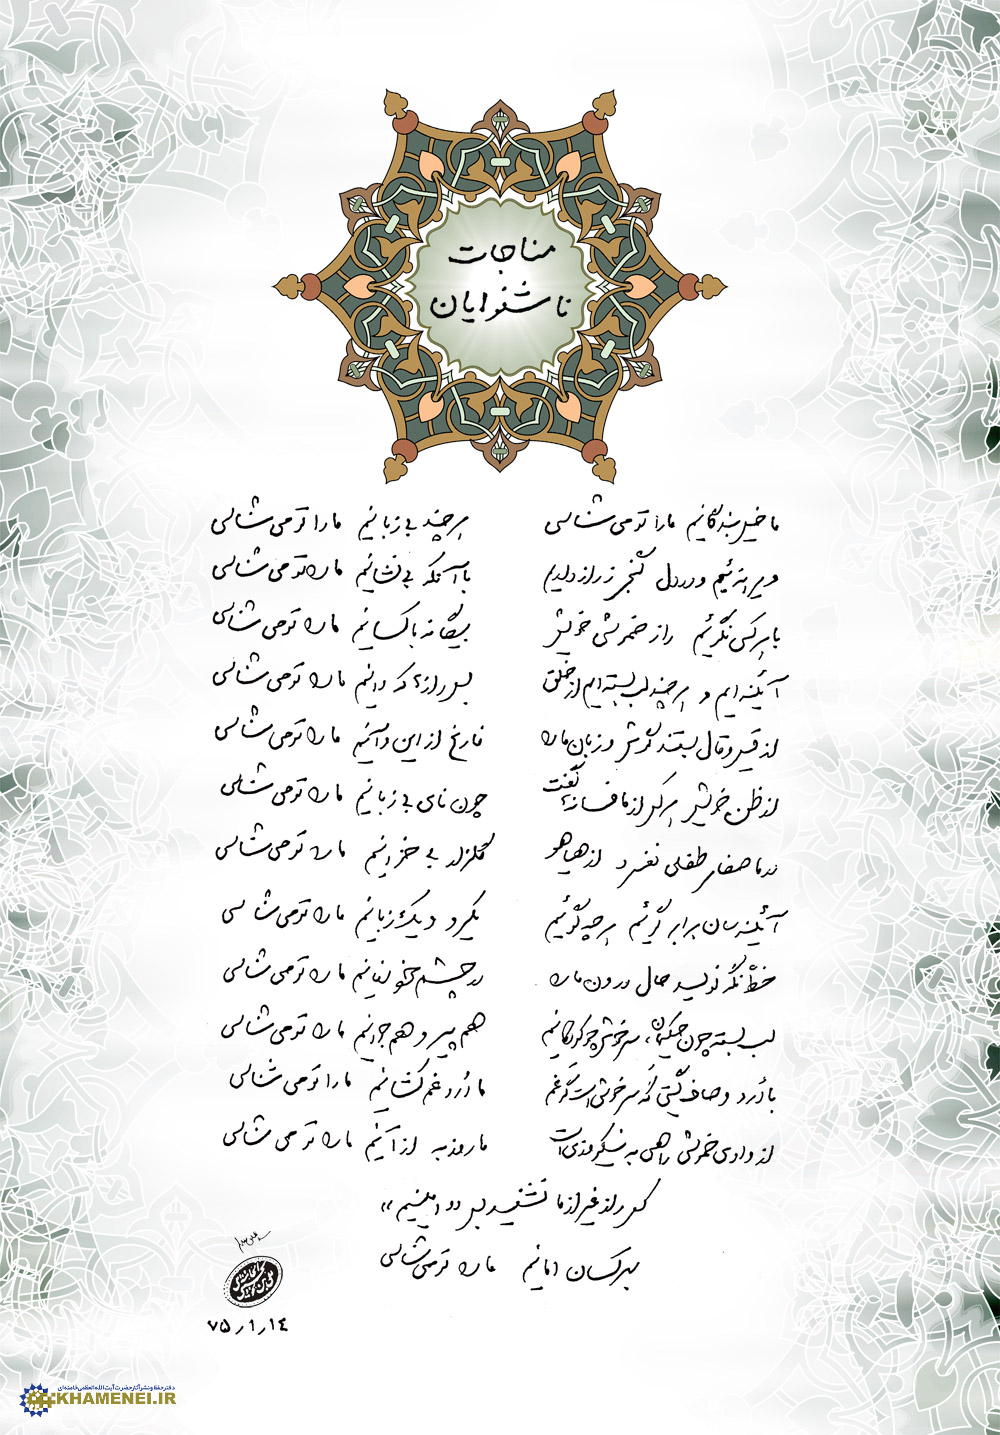 مناجات
ناشنوایان
ما خیل بندگانیم ما را تو می شناسی هر چند بی زبانیم ما را تو می شناسی
ویرانه ئیم و در دل گنجی ز راز داریم با آنکه بی نشانیم ما را تو می شناسی
با هر کسی نگوئیم راز خموشی خویش بیگانه با کسانیم ما را تو می شناسی
آئینه ایم و هر چند لب بسته ایم از خلق بس رازها که دانیم ما را تو می شناسی
از قیل و قال بستند گوش و زبان ما را فارغ از این و آنیم ما را تو می شناسی
از ظن خویش هر کس از ما فسانه ها گفت چون نای بی زبانیم ما را تو می شناسی
در ما صفای طفلی نفسرد از هیاهو گلزار بی خزانیم ما را تو می شناسی
آئینه سان برابر گوئیم هر چه گوئیم یکرو و یک زبانیم ما را تو می شناسی
خطّ نگه نویسد حال درون ما را در چشم ما را تو می شناسی
لب بسته چون حکیمان، سرخوش چو کودکانیم هم پیر و هم جوانیم ما را تو می شناسی
با دُرد و صاف گیتی گه سرخوش است گه غم ما دُرد غم کشانیم ما را تو می شناسی
از وادی خموشی راهی به نیکروزی است ما روزبه از آنیم ما را تو می شناسی
کس راز غیر از ما نشنید بس «امینیم»
بهر کسان امانیم ما را تو می شناسی
۷۵/۱/۱۴
دفتر حفظ و نشر آثار حضرت آیت الله العظمی خامنه ای
KHAMENEI.IR